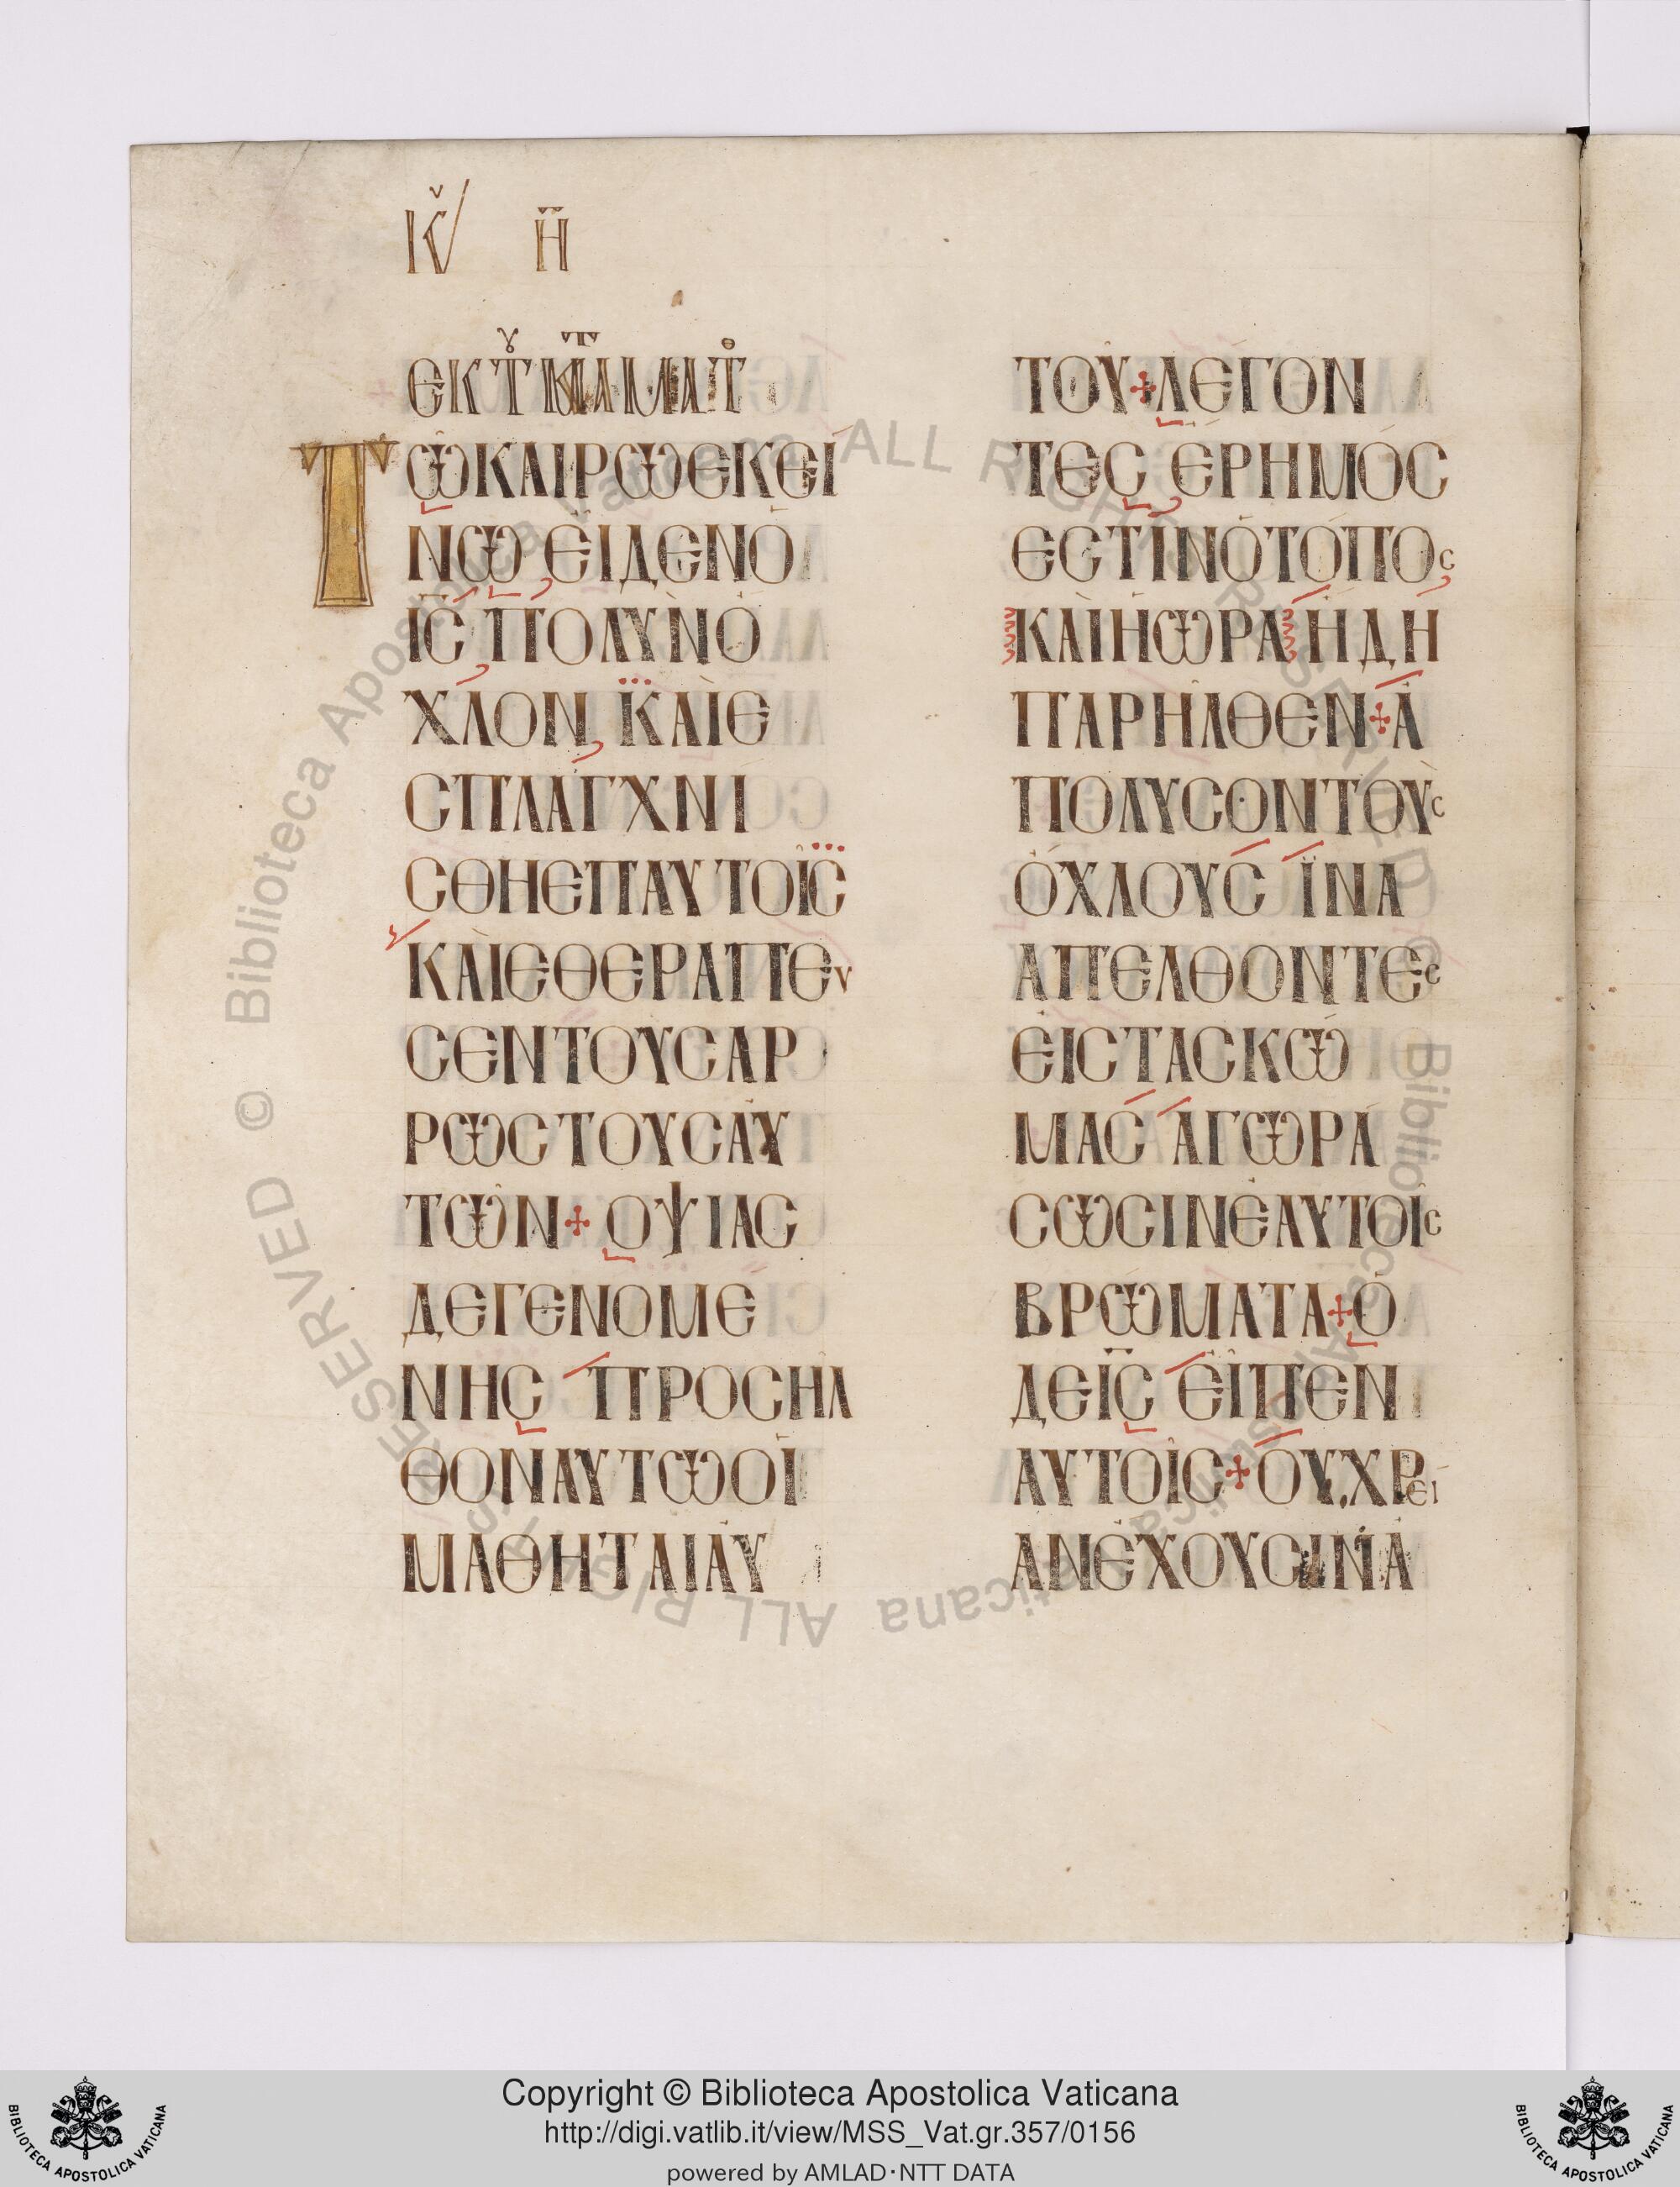 Κυ Η
ΕΚ Τ ΚΑΤΑ ΜΑΤΘ
ΤΩΚΑΙΡΩΕΚΕΙ
ΝΩ ΕΙΔΕΝΟ
ΙϹ ΠΟΛΥΝΟ
ΧΛΟΝ, ΚΑΙΕ
ϹΠΛΑΓΧΝΙ
ϹΘΗΕΠΑΥΤΟΙϹ
ΚΑΙΕΘΕΡΑΠΕΥ
ϹΕΝΤΟΥϹΑΡ
ΡΩϹΤΟΥϹΑΥ
ΤΩΝ + ΟΨΙΑϹ
ΔΕΓΕΝΟΜΕ
ΝΗϹ ΠΡΟϹΗΛ
ΘΟΝΑΥΤΩΟΙ
ΜΑΘΗΤΑΙΑΥ
ΤΟΥ + ΛΕΓΟΝ
ΤΕϹ ΕΡΗΜΟϹ
ΕϹΤΙΝΟΤΟΠΟϹ
ΚΑΙΗΩΡΑ ΗΔΗ
ΠΑΡΗΛΘΕΝ + Α
ΠΟΛΥϹΟΝΤΟΥϹ
ΟΧΛΟΥϹ ΪΝΑ
ΑΠΕΛΘΟΝΤΕϹ
ΕΙϹΤΑϹΚΩ
ΜΑϹ ΑΓΩΡΑ
ϹΩϹΙΝΕΑΥΤΟΙϹ
ΒΡΩΜΑΤΑ + Ο
ΔΕΙϹ ΕΙΠΕΝ
ΑΥΤΟΙϹ + ΟΥ,ΧΡΕΙ
ΑΝΕΧΟΥϹΙΝΑ
© Biblioteca Apostolica Vaticana ALL RIGHTS RESERVED © Biblioteca Apostolica Vaticana ALL RIGHTS RESERVED
Copyright © Biblioteca Apostolica Vaticana
http://digi.vatlib.it/view/MSS_Vat.gr.357/0156
powered by AMLAD·NTT DATA
BIBLIOTECA APOSTOLICA VATICANA
BIBLIOTECA APOSTOLICA VATICANA